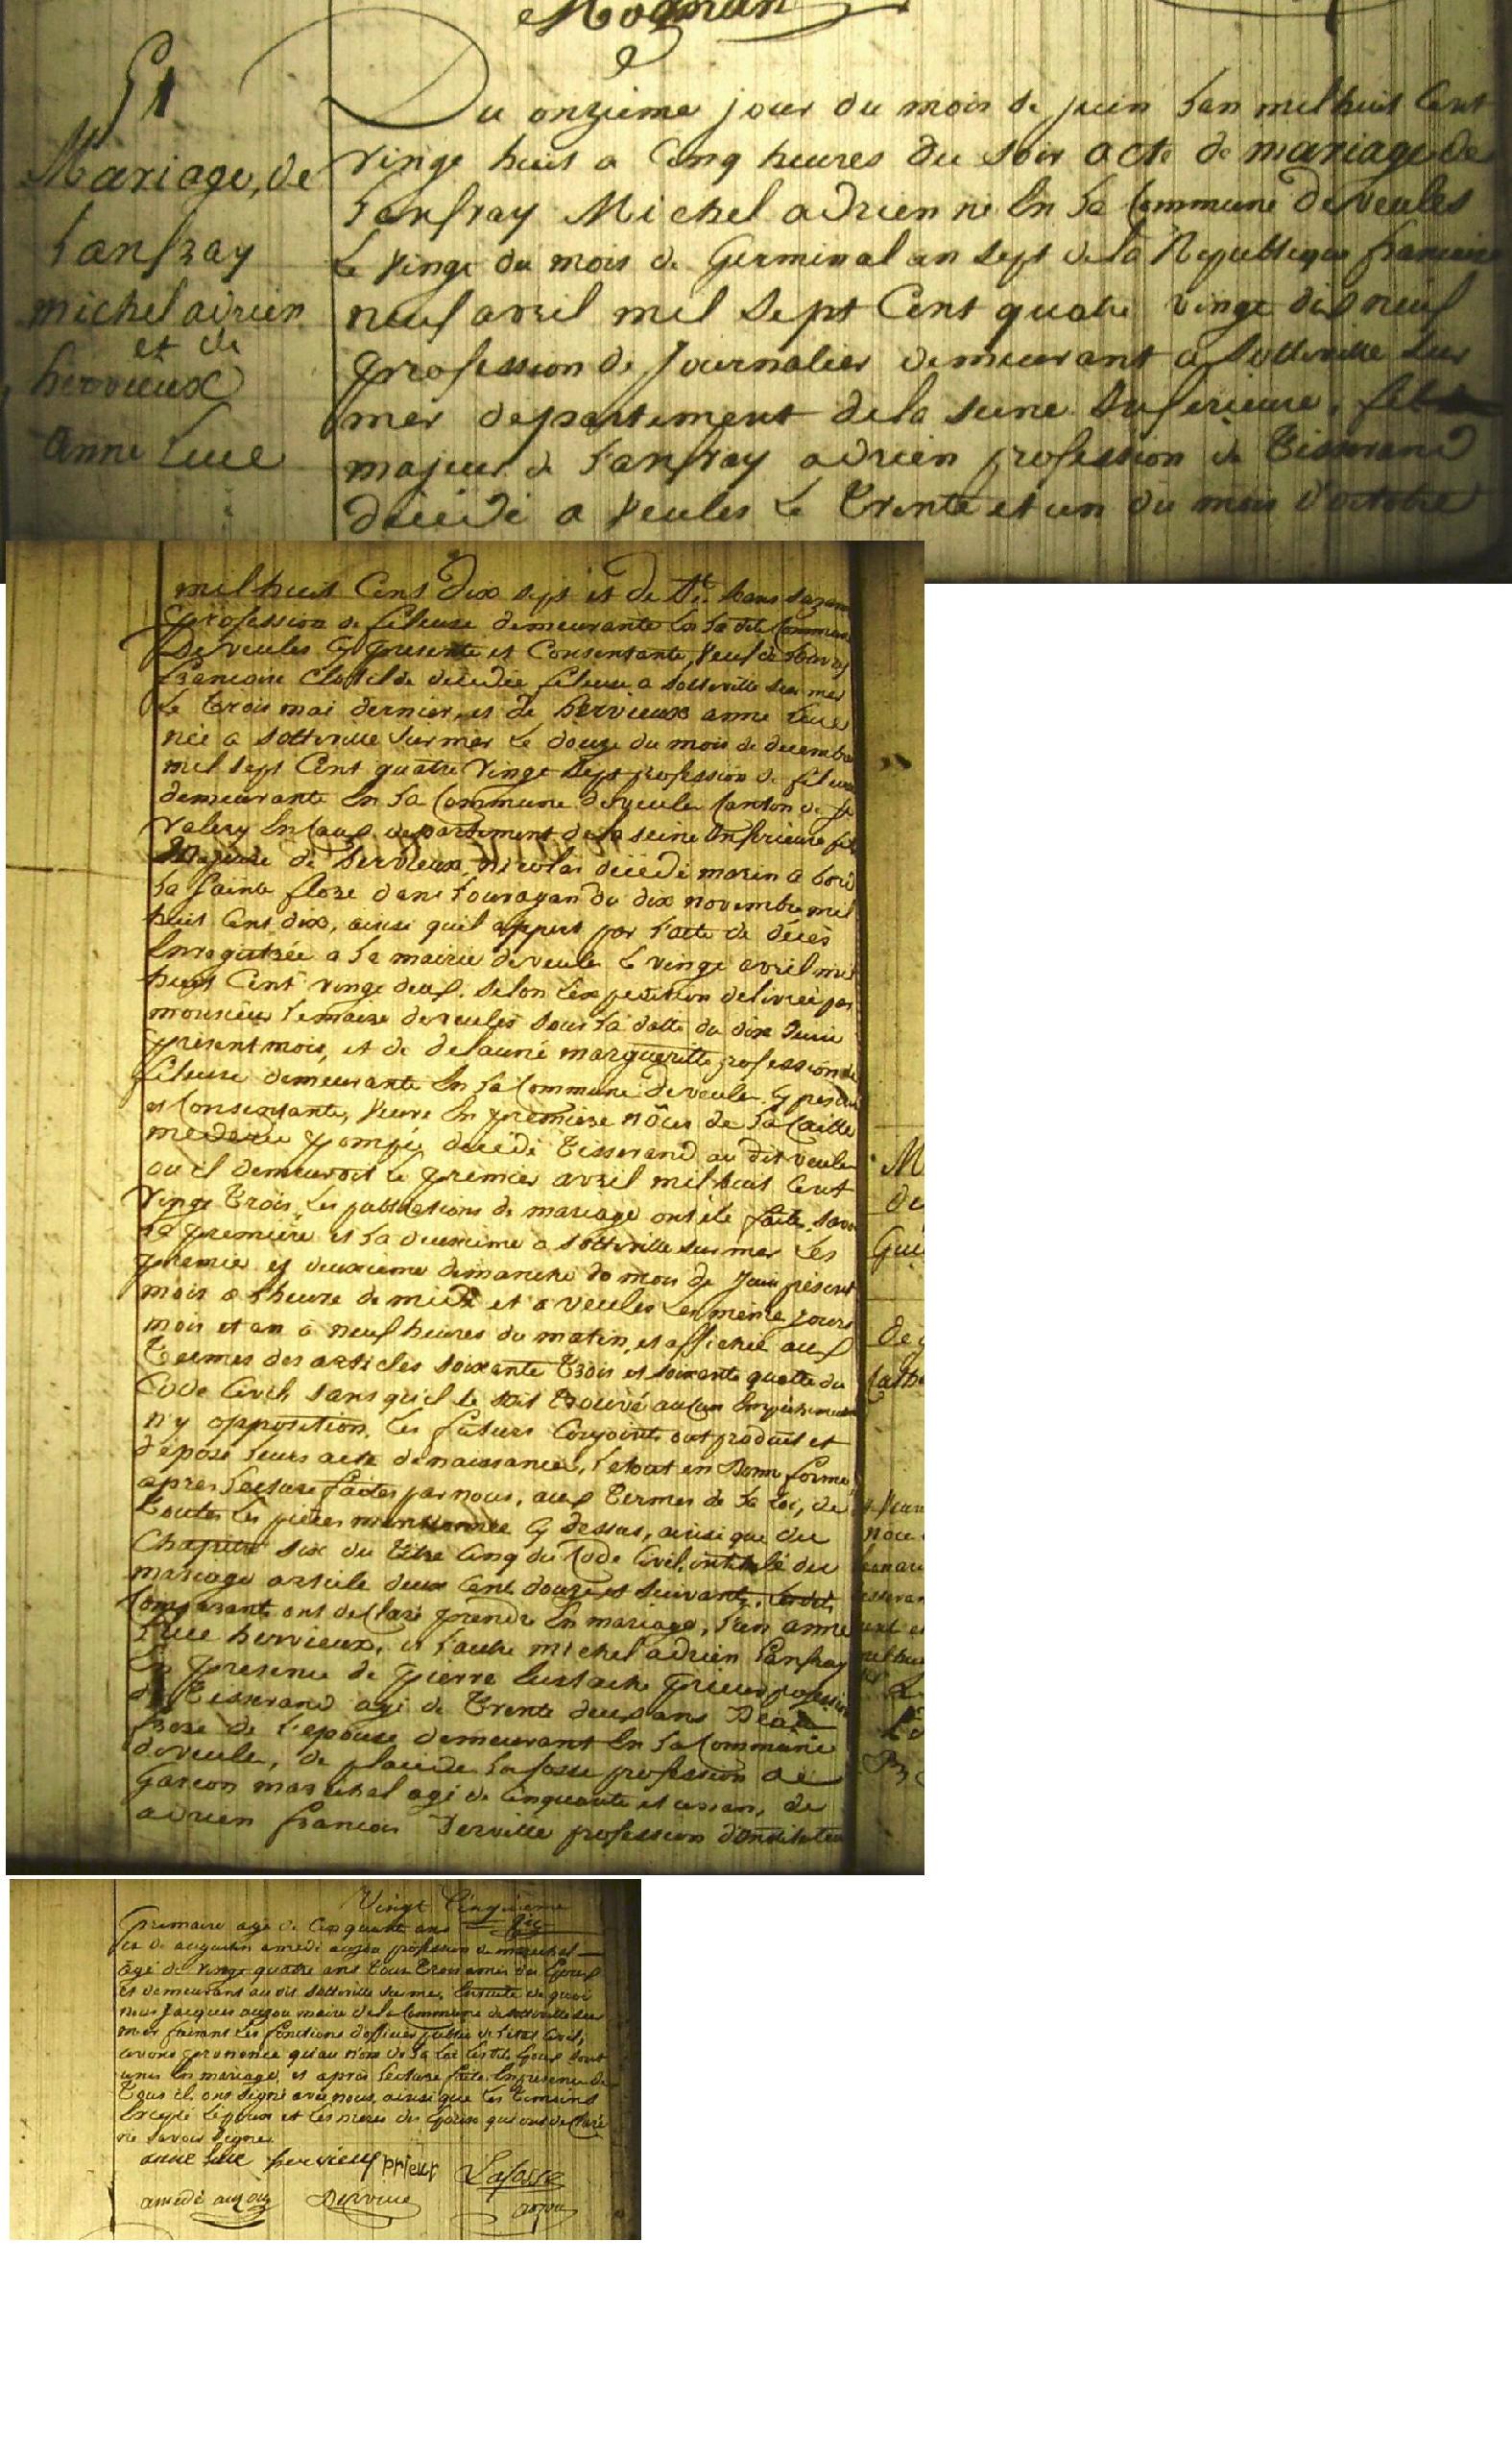 Mogman
51
Mariage, de
Lanfray
michel adrien
et de
hervieux
anne luce
Du onzieme jour du mois de juin Lan mil huit Cent
Vingt huit a Cinq heures du soir acte de mariage de
Lanfray Michel adrien né En La Commune de Veules
Le Vingt du mois de Germinal an sept de la Republique francaise
neuf avril mil sept Cent quatre vingt dix neuf
profession de Journalier demeurant a sotteville sur
mer departement de la seine Inferieure, fils
majeur de Lanfray adrien profession de Tisserand
décédé a Veules Le Trente et un du mois d'octobre
mil huit Cent dix sept et de
profession de fileuse demeurante En La dite Commune
De veules Cy presente et Consentante, Veuf de
francoise Clotilde décédée fileuse a sotteville sur mer
Le Trois mai dernier, et de hervieux anne luce
née a sotteville sur mer Le douze du mois de decembre
mil sept Cent quatre Vingt sept profession de fileuse
demeurante En La Commune de veules Canton de St
Valery En Caux departement de la seine Inferieure fille
Majeure de hervieux, nicolas décédé marin a bord
La Sainte flore dans L'ouragan du dix novembre mil
huit Cent dix, ainsi quil appert par L'acte de décès
Enregistrée a La mairie de veules Le vingt avril mil
huit Cent vingt deux. Selon L'expedition delivrée par
monsieur Lemaire de veules sous La datte du dix Juin
present mois, et de delauné margueritte profession de
fileuse demeurante En La Commune de veules Cy presente
et Consentante, Veuve En premiere nôces de La Caille
pompé décédé Tisserand au dit veules
ou il demeuroit Le premier avril mil huit Cent
Vingt Trois, Les publications de mariage ont été faite, savoir
La premiere et La deuxieme a sotteville sur mer Les
premier et deuxieme dimanche do mois de Juin present
mois a L'heure de midi et a veules Les même jours
mois et an a neuf heures du matin, et affichée aux
Termes des articles soixante Trois et soixante quatre du
Code Civil sans qu'il se soit Trouvé aucun Empêchement
n'y opposition. Les futurs Conjoints ont produit et
déposé Leurs acte de naissance, Letout en Bonne forme
apres Lecture faites par nous, aux Termes de La Loi, de
Toutes Les pieces mentionnée Cy dessus, ainsi que du
Chapitre six du Titre Cinq du Code Civil, intitulé du
mariage article deux Cent douze et suivant, Lesdits
Comparants ont declaré prendre En mariage, L'un anne
Luce hervieux, et L'autre michel adrien Lanfray
En presence de pierre Eustache prieur profession
de Tisserand agé de Trente deux ans Beau
frere de L'epouse demeurant En La Commune
de veules, de placide Lafosse profession de
Garcon marechal agé de Cinquante et un ans, de
adrien francois Derville profession d'Instituteur
Vingt Cinquieme
primaire agé de Cinquante ans
et de augustin amédé auzou profession de marechal
âgé de Vingt quatre ans Tous Trois amis des Epoux
Et demeurant au dit sotteville sur mer, Ensuite de quoi
nous Jacques auzou maire de La Commune de sotteville sur
mer faisant Les fonctions d'officier public de L'état Civil,
avons prononcé qu'au nom de La Loi Lesdits Epoux sont
unis En mariage, et après Lecture faite En presence de
Tous il ont signé avec nous, ainsi que Les Temoins
Excepté L'epoux et Les meres des Epoux qui ont declaré
ne savoir Signer
anne luce hervieux prieur Lafosse
amédé auzou Derville auzou